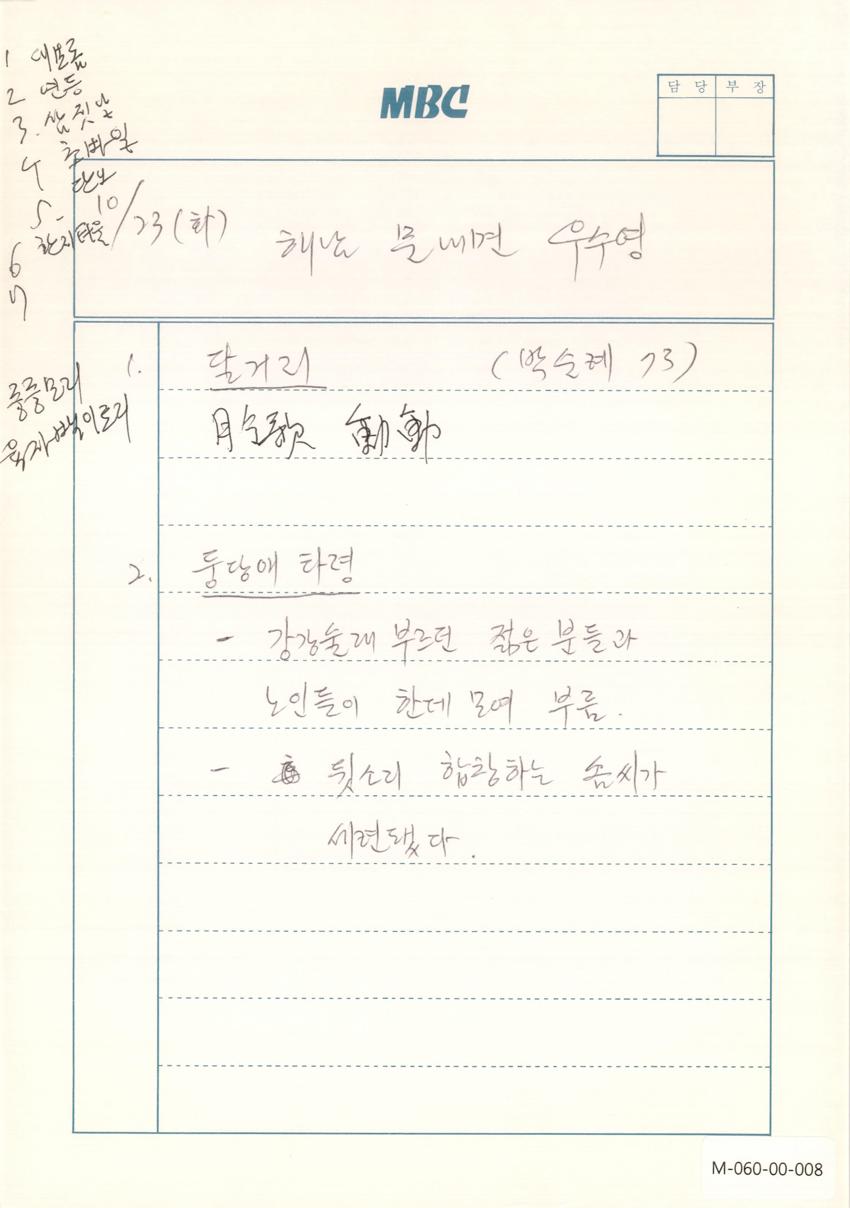 1 대보름
2 연등
3. 삼짓날
4 초파일
단오
5-
6
7
MBC
담 당 부 장
10/23(화) 해남 문내면 우수영
1. 달거리 (박순례 73)
중중모리
육자백이토리
月令歌 動動
2. 둥당애 타령
- 강강술래 부르던 젊은 분들과
노인들이 한데 모여 부름.
- 뒷소리 합창하는 솜씨가
세련됐다.
M-060-00-008